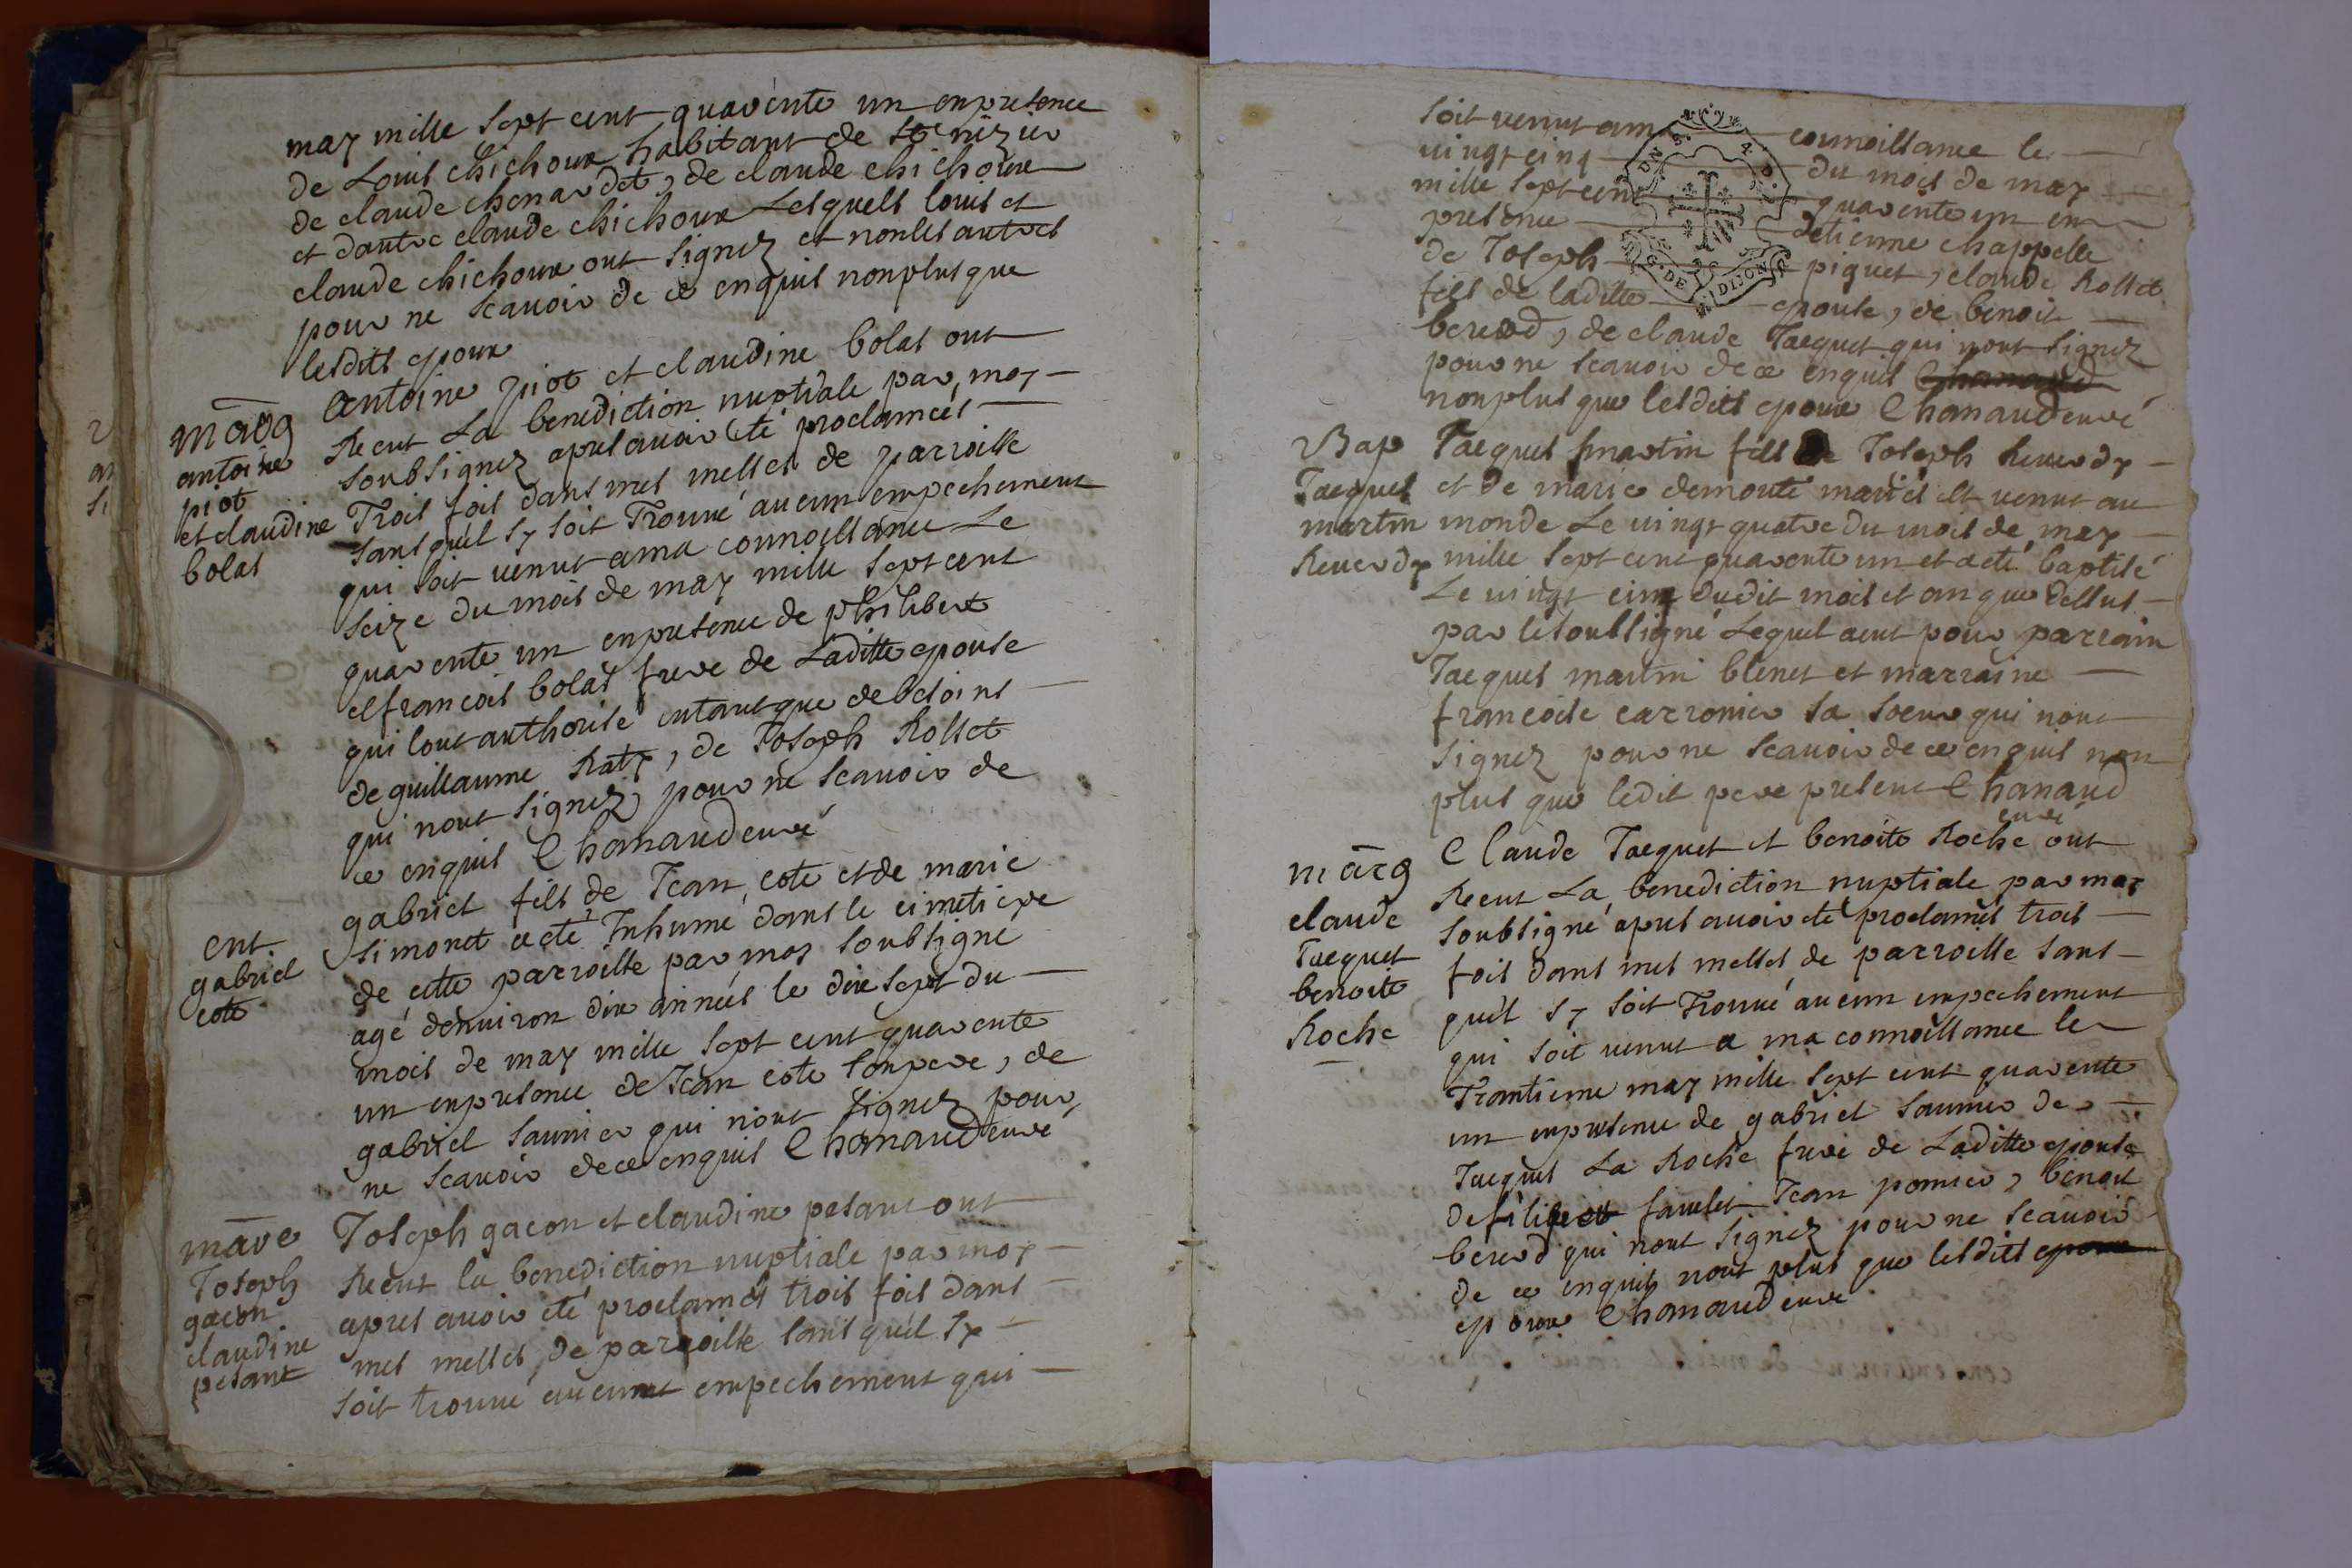 may mille sept cent quarente un enpresence
de Louis chichoux habitant de St nizier
de claude chenardet, de claude chichoux
et dautre claude chichoux Lesquels louis et
claude chichoux ont signez et non les autres
pour ne scavoir de ce enquis nonplus que
lesdits epoux
marg
antoine
piot
et claudine
bolas
antoine piot et claudine bolas ont
Recut La benediction nuptiale par moy
soubsignez apres avoir été proclamées
Trois fois dans mes messes de parroisse
sans quil sy soit Trouvé aucun empechement
qui soit venut a ma connoissance Le
seize du mois de may mille sept cent
quarente un enpresence de philibert
et francois bolas frere de Laditte epouse
qui lont authorisé entant que de besoins
de guillaume Raty, de Joseph Rosset
qui nont signez pour ne scavoir de
ce enquis Chanaud curé
ent
gabriel
cote
gabriel fils de Jean cote et de marie
simonet a eté Inhumé dans le cimetiere
de cette parroisse par moy soubsigné
agé denviron dix années le dix sept du
mois de may mille sept cent quarente
un enpresence de Jean cote son pere, de
gabriel saunier qui nont signez pour
ne scavoir de ce enquis Chanaud curé
mare
Joseph
gacon
claudine
pesant
Joseph gacon et claudine pesant ont
Recut la benediction nuptiale par moy
apres avoir été proclamés trois fois dans
mes messes de parroisse sans quil sy
soit trouvé aucunt empechement qui
soit venut a ma connoissance le
vingt cinq du mois de may
mille sept cent quarente un en
presence detienne chappelle
de Joseph piquet, claude Rosset
fils de laditte epouse, de benoit
bererd, de claude Jacquet qui nont signez
pour ne scavoir de ce enquis Chanaud
nonplus que lesdits epoux Chanaud curé
Bap
Jacques
martin
Reverdy
Jacques martin fils de Joseph Reverdy
et de marie demonte mariés est venut au
monde Le vingt quatre du mois de may
mille sept cent quarente un et a eté baptisé
Le vingt cinq dudit mois et an que dessus
par le soussigné Lequel a eut pour parrain
Jacques martin blenet et marraine
francoise carronier sa soeur qui nont
signez pour ne scavoir de ce enquis non
plus que ledit pere present Chanaud
curé
marg
claude
Jacquet
benoite
Roche
Claude Jacquet et benoite Roche ont
Recut La benediction nuptiale par moy
soubsigné apres avoir eté proclamés trois
fois dans mes messes de parroisse sans
quil sy soit Trouvé aucun empechement
qui soit venut a ma connoissance le
Trantieme may mille sept cent quarente
un enpresence de gabriel saunier de
Jacques La Roche frere de Laditte epouse
de Jean pomier, benoit
bererd qui nont signez pour ne scavoir
de ce enquis nont plus que lesdits epoux
epoux Chanaud curé
G. DE DIJON